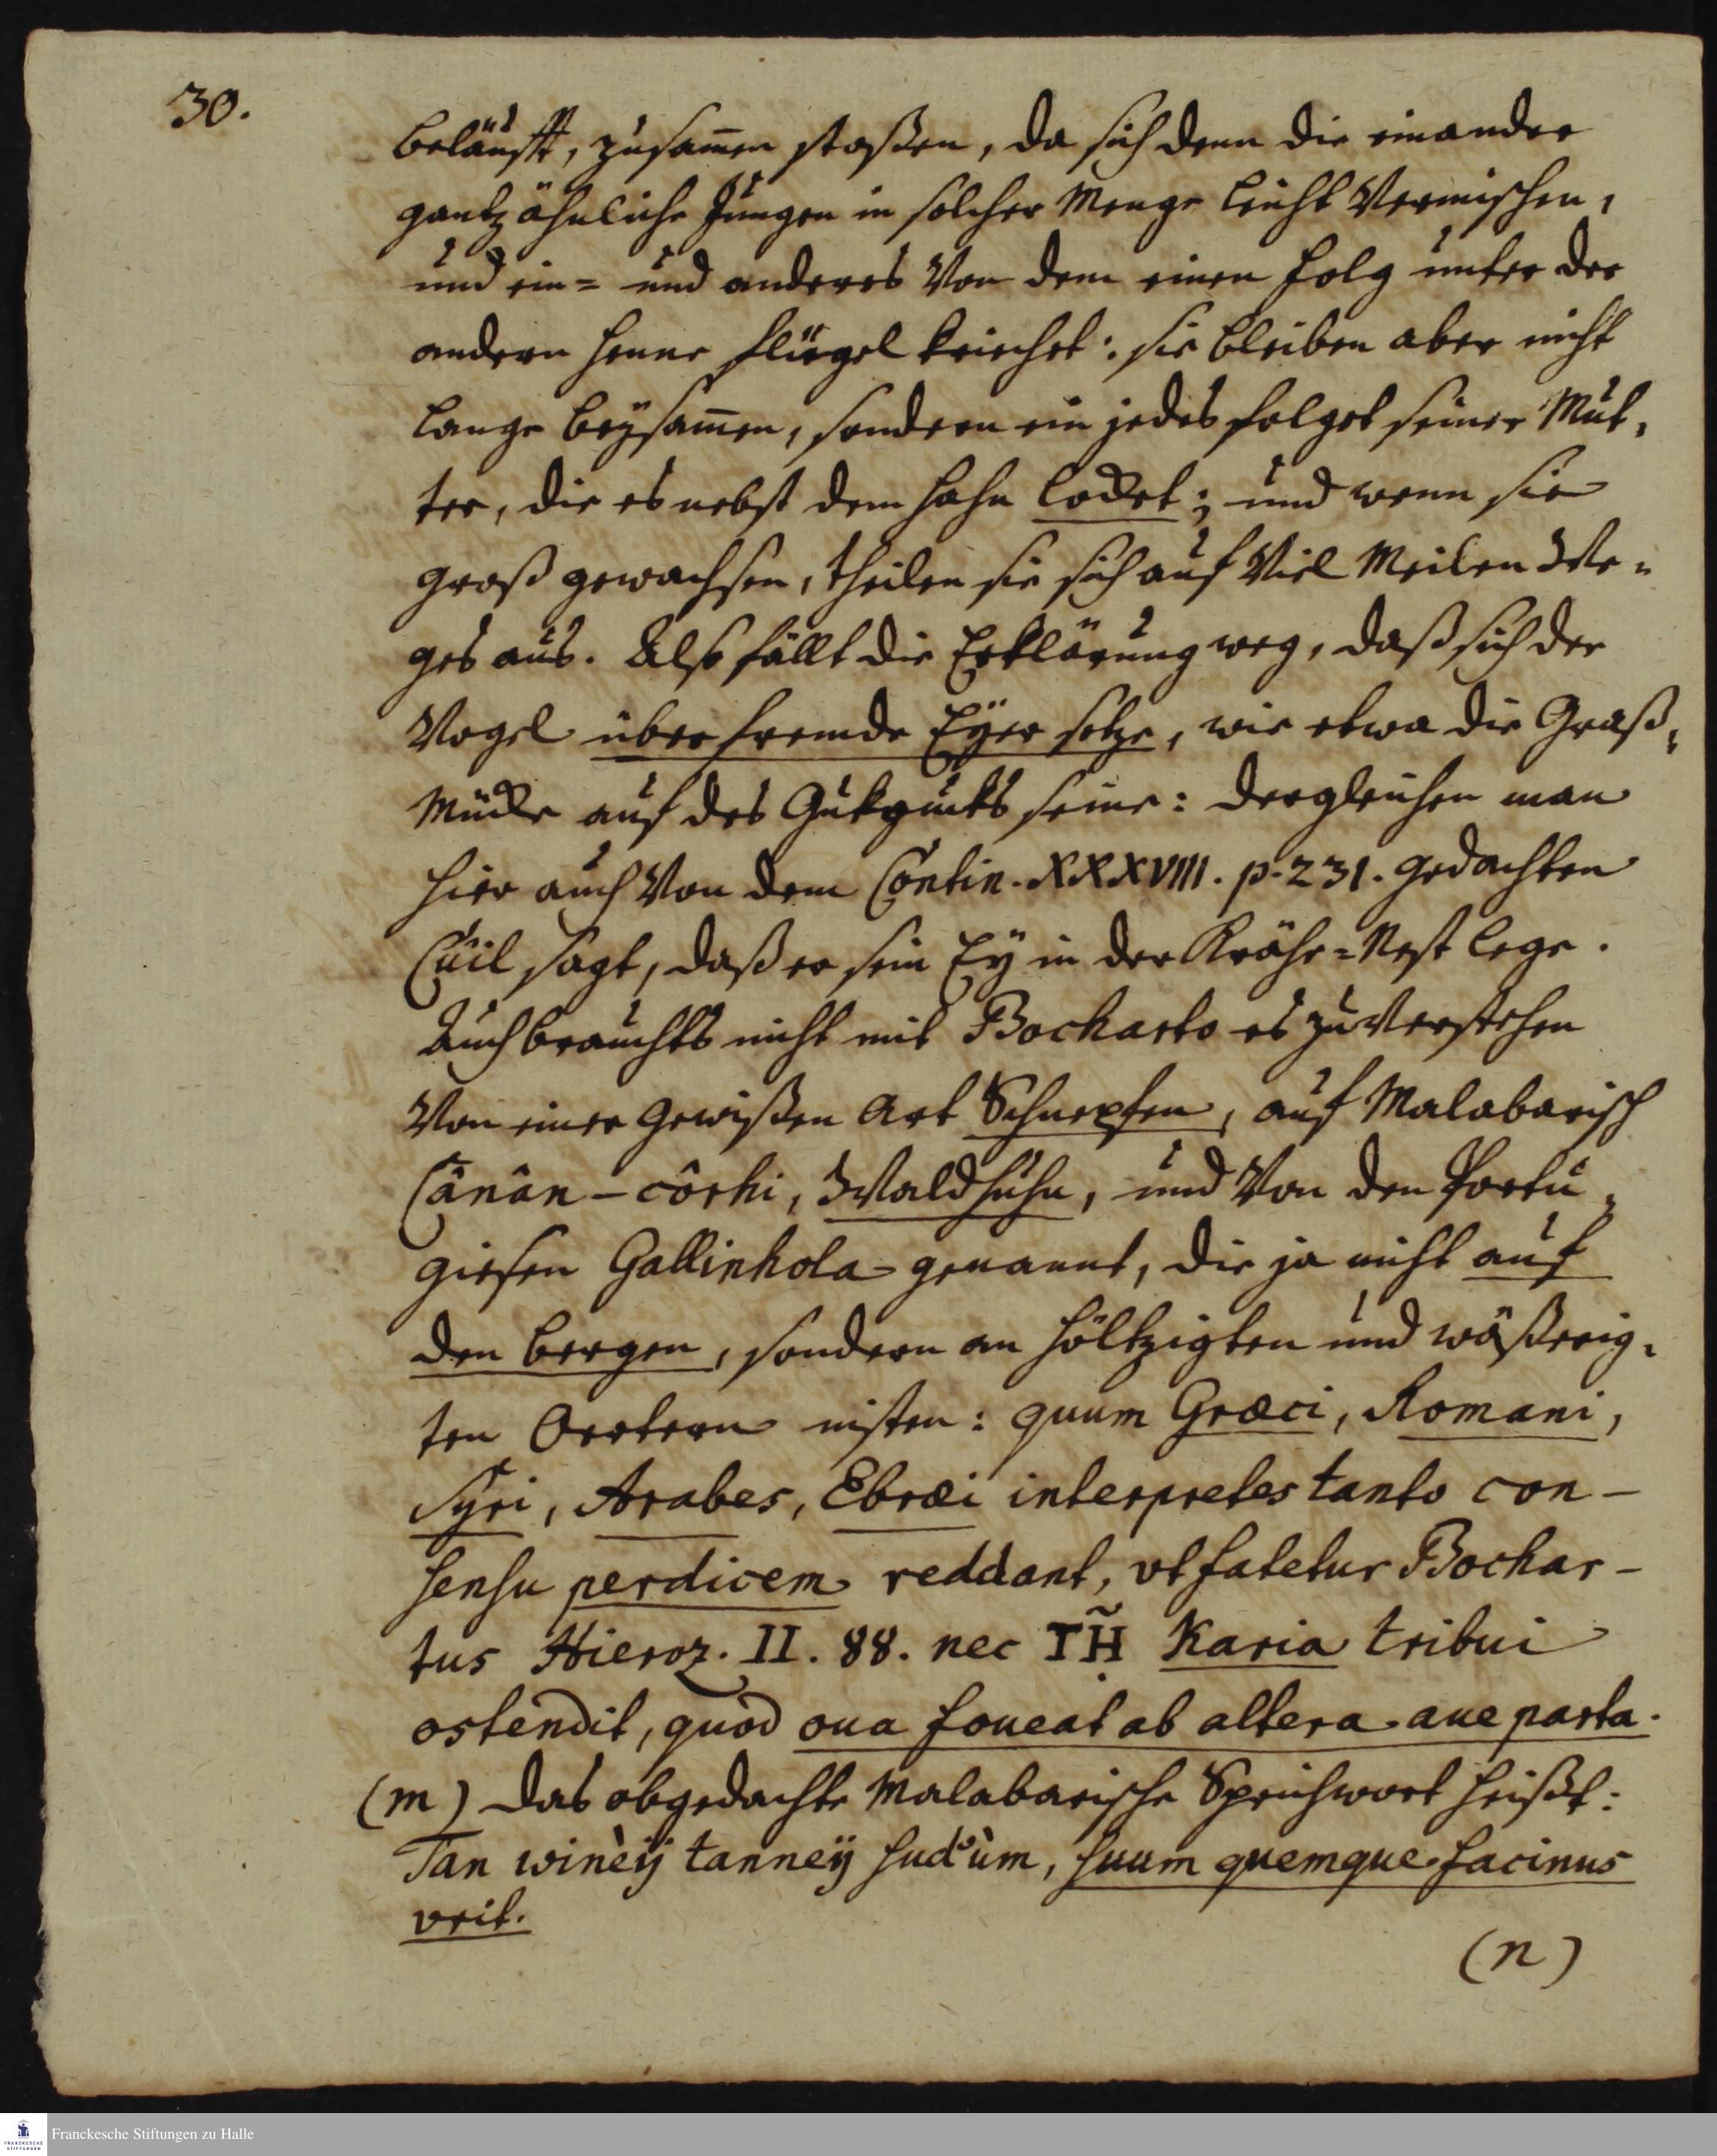 30.
beläufft, zusam̄en stoßen, da sich denn die einander
gantz ähnliche Jungen in solcher Menge leicht vermischen,
und ein= und anderes von dem einen Folg unter der
andern Henne Flügel kriechet: sie bleiben aber nicht
lange beysam̄en, sondern ein jedes folget seiner Mut-
ter, die es nebst dem Hahn locket; und wenn sie
groß gewachsen, theilen sie sich auf viel Meilen We-
ges aus. Also fällt die Erklärung weg, daß sich der
Vogel über fremde Eyer setze, wie etwa die Graß-
Mücke auf des Gukguks seine: dergleichen man
hier auch von dem Contin. XXXVIII. p. 231. gedachten
Cuil sagt, daß er sein Ey in der Krähe=Nest lege.
Auch brauchts nicht mit Bocharto es zu verstehen
von einer gewißen Art Schnepfen, auf Malabarisch
Cânân-côrhi, Waldhuhn, und von den Portu-
giesen Gallinhola genannt, die ja nicht auf
den Bergen, sondern an höltzigten und wäßerig-
ten Oertern nisten: quum Græci, Romani,
Syri, Arabes, Ebræi interpretes tanto con-
sensu perdicem reddant, vt fatetur Bochar-
tus Hieroz. II. 88. nec τῇ Karia tribui
ostendit, quod oua foueat ab altera aue parta.
(m) Das obgedachte Malabarische Sprichwort heißt:
Tan winèij tanneij sudùm, suum quemque facinus
vrit.
(n)
Franckesche Stiftungen zu Halle